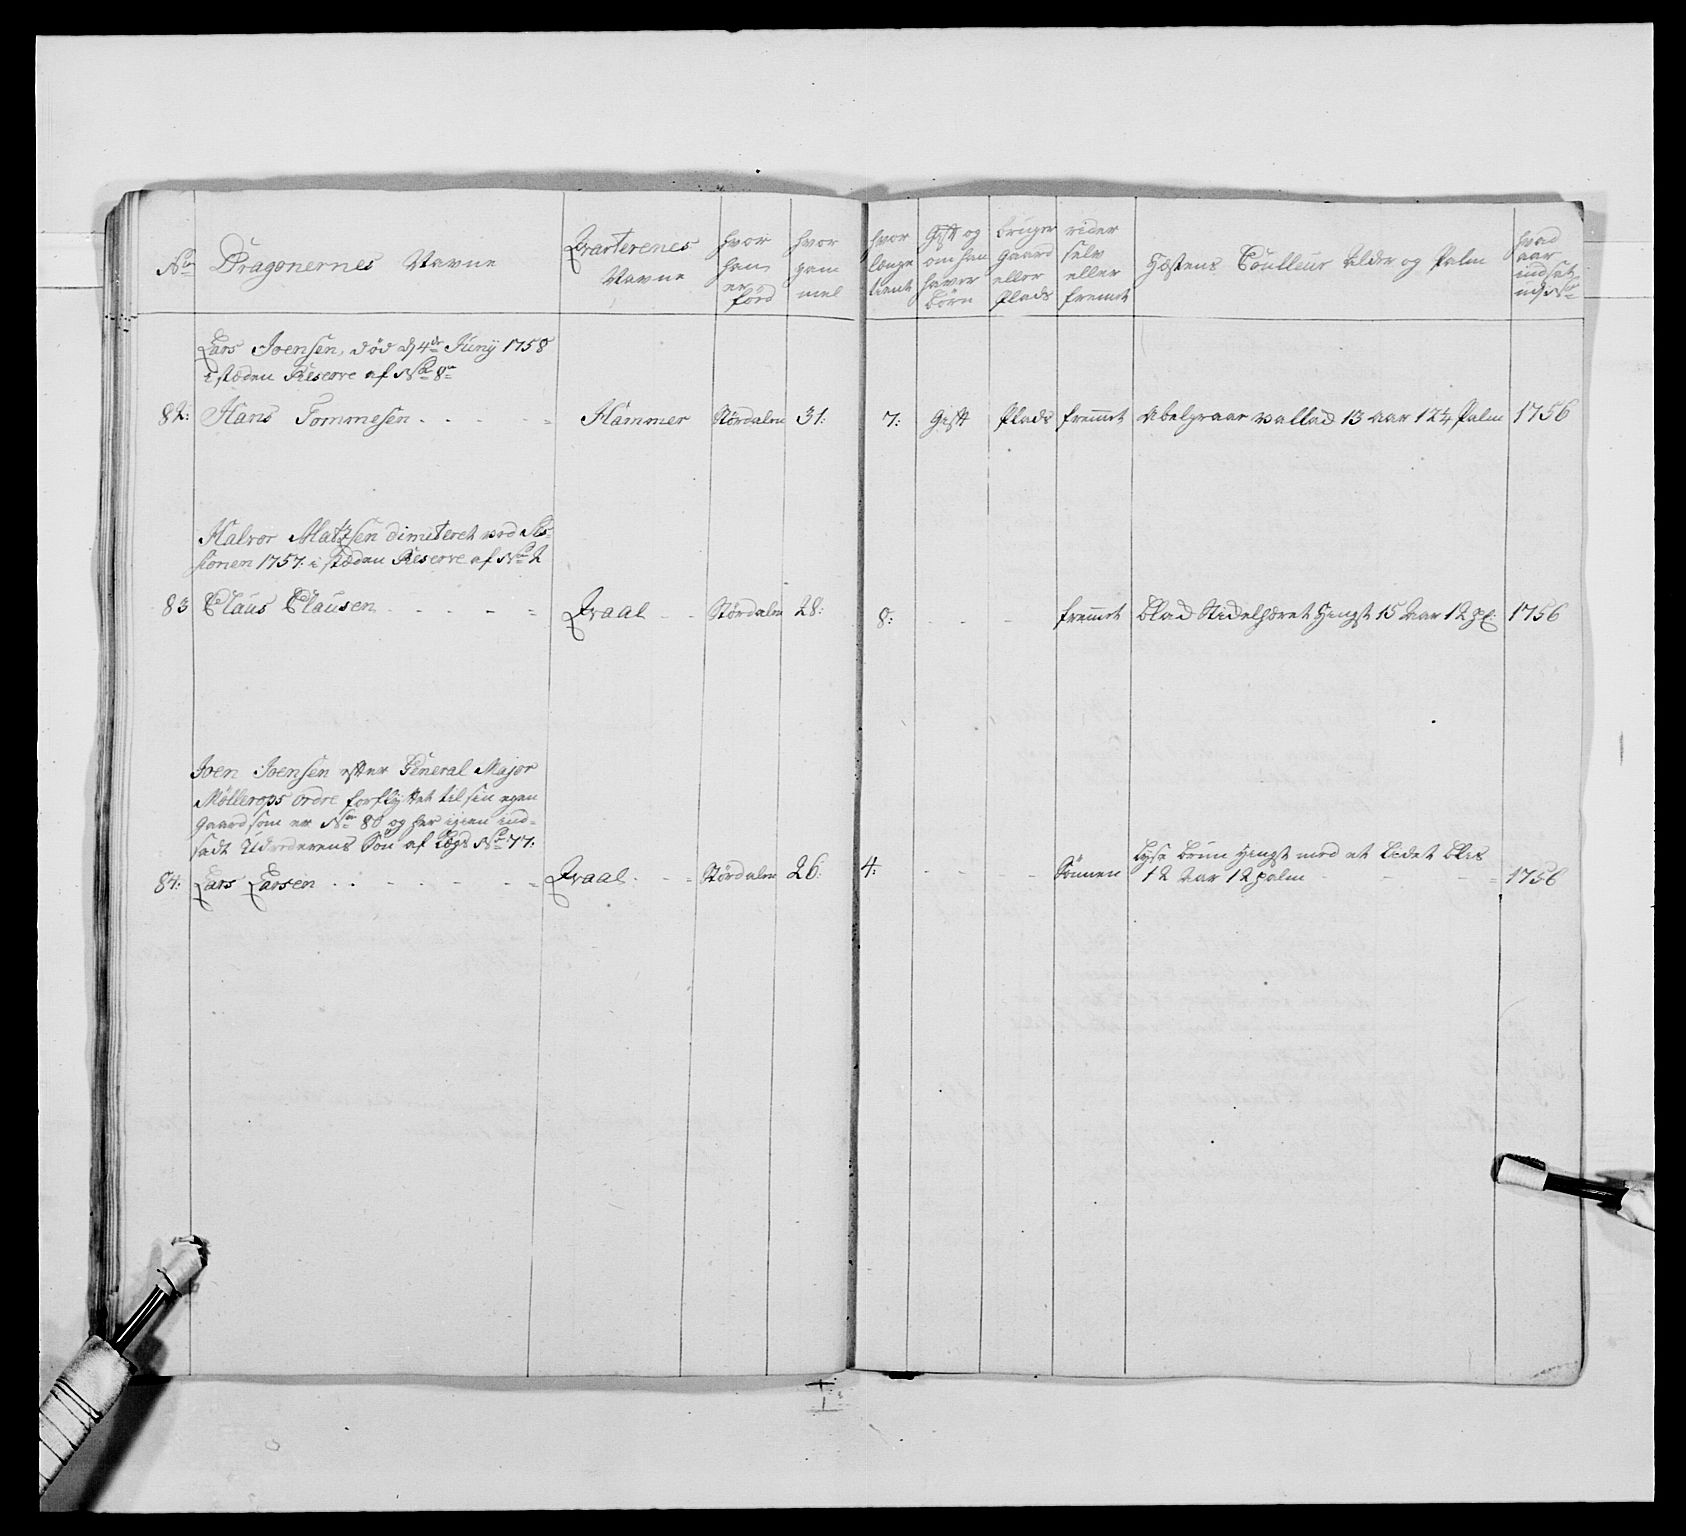 No Dragonernes Navne
Qvarterenes Navne
hvor han er född
hvor gam mel
hvor længe tient
Gift og om han haver Börn
bruger gaard eller Plads
rider selv eller fremet
Hæstens Coulleur Alder og Palm
hvad aar indsat
Lars Joensen, död d 4de Junÿ 1758
i stæden Reserve af No 8
82: Hans Tommesen Hammer Stördalen 31: 7: Gift Plads fremet Abelgraae vallad 13 aar 12¼ Palm 1756
Halvor Matzsen dimiteret ved Ses-
sionen 1757. i stæden Reserve af No 2
83 Claus Clausen Qvaal Stördalen 28: 8: fremet blad Hingst 15 Aar 12 1756
Joen Joensen efter General Major
Möllerops ordre forflÿttet til sin egen
gaard som er No 80 og her igien ind-
sadt Sön af Lægd No 77.
84: Lars Larsen Qvaal Stördalen 26: 4: Sönnen lyse brun Hingst med et lidet blis
12 Aar 12 palm 1756